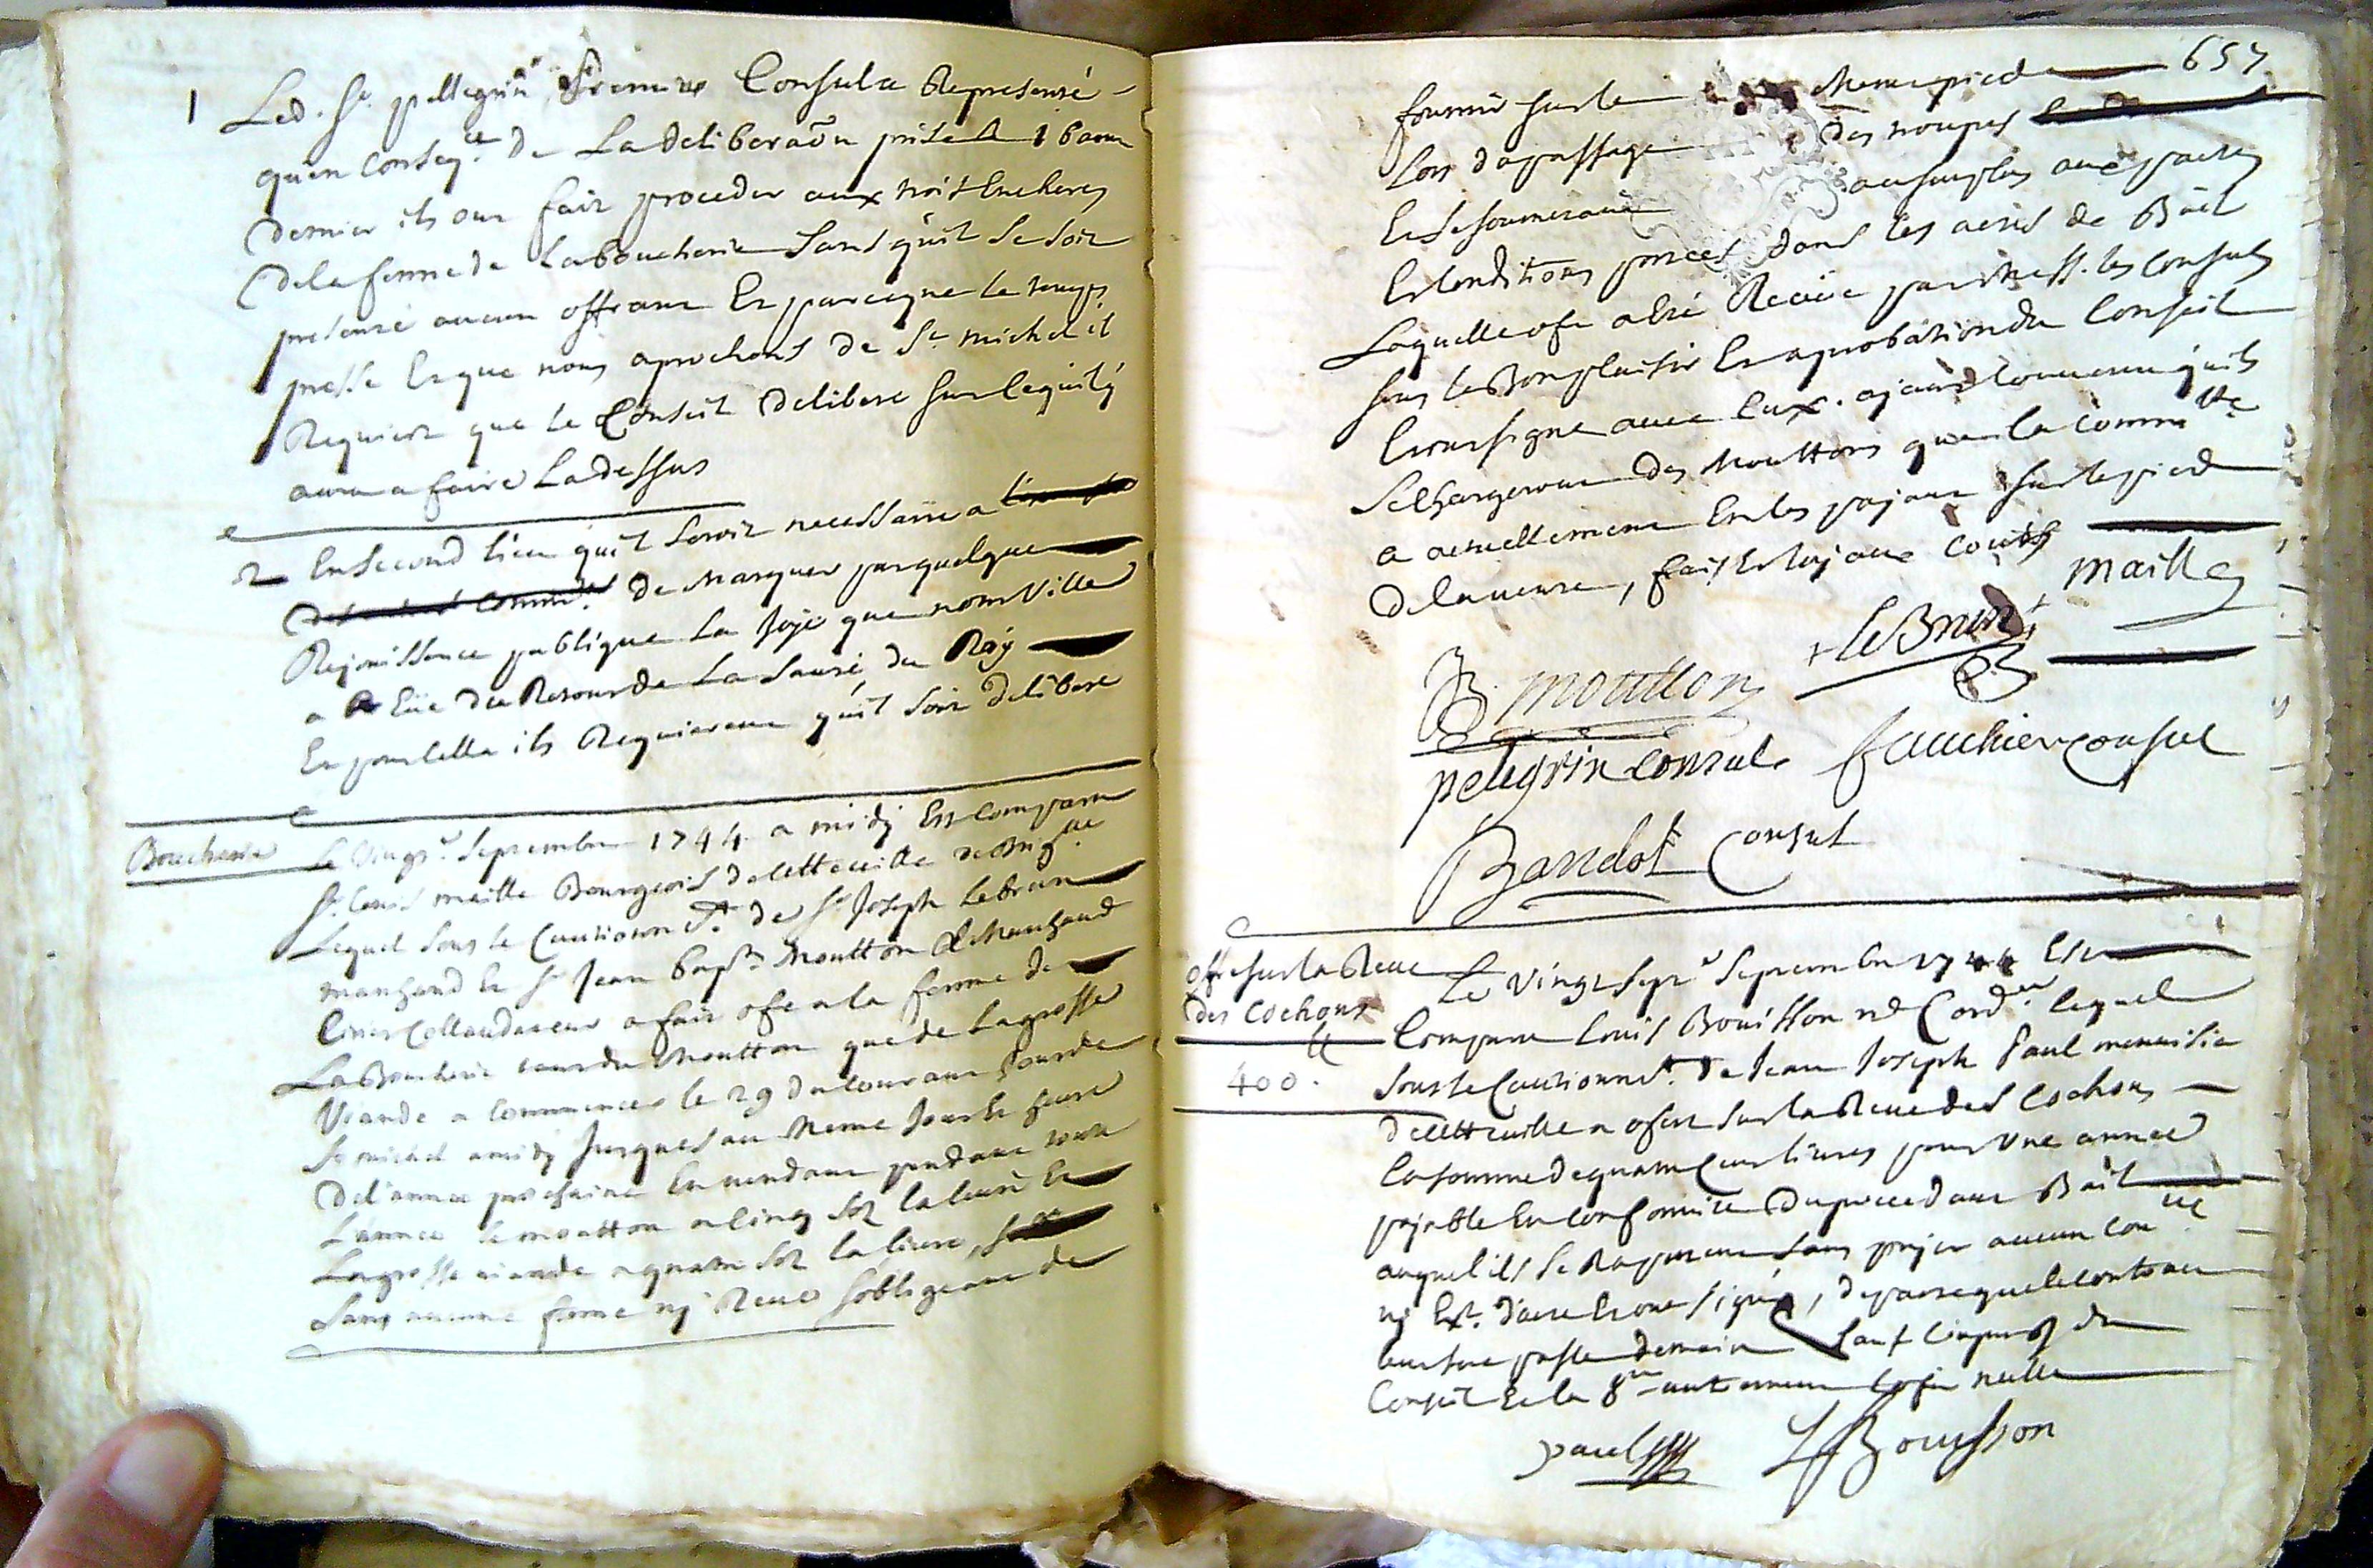 1 Led. Sr. pellegrin Premier Consul a Representé
qu'en conseqce. de La deliberaõn prise le 16 aoust
dernier ils ont fait proceder aux trois Encheres
de la ferme de la boucherie Sans qu'il se soit
presenté aucun offrant Et parceque le temps
presse Et que nous aprochons de St. michel il
Requiert que le Conseil delibere sur le quil y
aura a faire La dessus
2 En Second lieu qu'il seroit necessaire a
De marquer par quelque
Rejouissance publique La joye que notre Ville
a Eüe du Retour de La Santé du Roy
Et pour cella ils Requierent qu'il soit delibere
Boucherie
Le Vingt Septembre 1744 a midy Est comparu
Sr. Louis maille Bourgeois de cette ville de
Lequel sous le Cautionnt. de Sr. Joseph Lebrun
marchand Et Sr. Jean bapte. Moutton marchand
a fait ofre a la ferme de
La Boucherie tant du Moutton que de La grosse
Viande a commencer le 29 du courant jour de
St michel a midy jusques au meme jour Et heure
de l'année prochaine En vendant pendant toute
L'année le moutton a cinq sol la livre Et
La grosse viande a quatre sol la livre,
Sans aucune ferme ny Reve s'obligeant de
657
fournir sur le meme pied
Lors du passage des troupes
Et se soumetant au surplus aux pactes
Et Conditions portés dans les actes de Bail
Laquelle ofre a Eté Receüe par Mess. les Consuls
sous le Bon plaisir Et aprobation du Conseil
Et ont signé avec Eux. ayant Convenu qu'ils
se chargeront des Mouttons que la Commté.
a actuellement En les payant sur le pied
de la vente,
maille
leBrun
B. moutton
pelegrin consul fauchier consul
Bandol Consul
ofre sur la Reve
des Cochons
400 tt.
Le Vingt Sept Septembre 1744 Est
Comparu Louis Bouisson me Cordr. lequel
sous le Cautionnet. de Jean Joseph Paul menuisier
de cette ville a ofert sur la Reve des Cochons
la somme de quatre Cent livres pour Une année
payable En conformité du precedant Bail
auquel ils se Raportent sans payer aucun
ny Ext. d'acte Et ont signés,
demain
Conseil
paul LBouisson